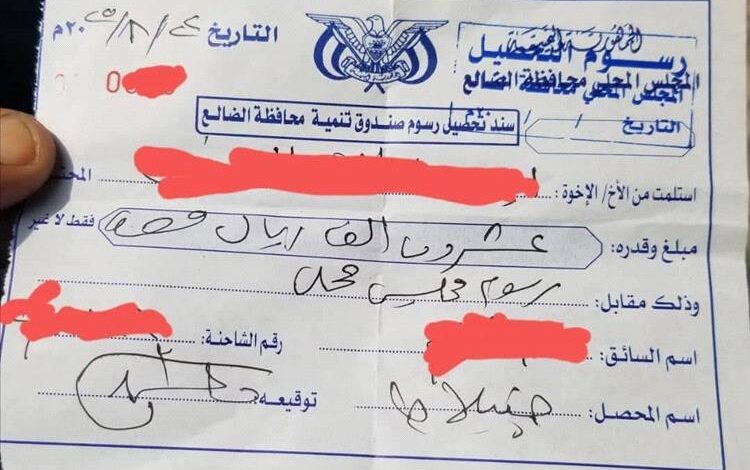 الجمهورية اليمنية
رسوم التحصيل
المجلس المحلي محافظة الضالع
المجلس المحلي محافظة الضالع
التاريخ / /
التاريخ / ٨ / ٢٠٢٥م
0
سند تحصيل رسوم صندوق تنمية محافظة الضالع
استلمت من الأخ/ الإخوة :
مبلغ وقدره: عشرون الف ريال فقط لا غير
وذلك مقابل: رسوم مجلس محلي
اسم السائق: رقم الشاحنة:
اسم المحصل: توقيعه: